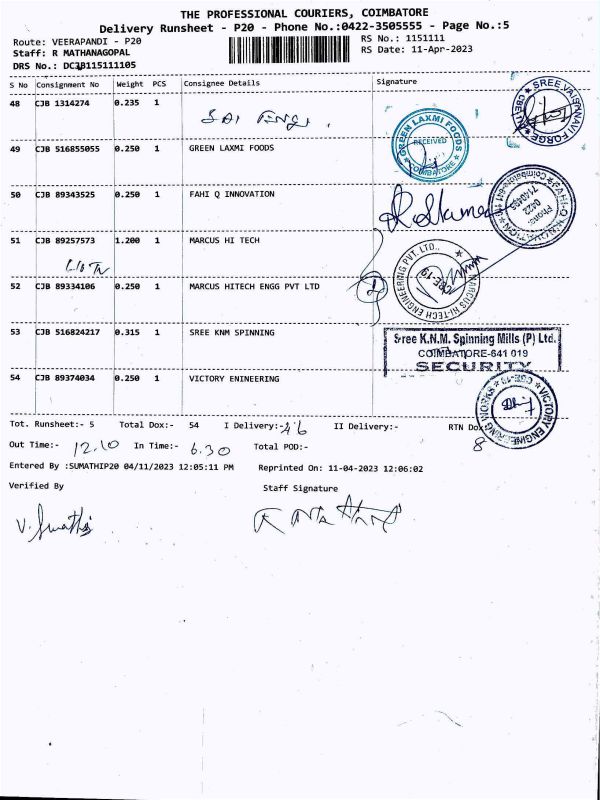 THE PROFESSIONAL COURIERS, COIMBATORE
Delivery Runsheet - P20 - Phone No.:0422-3505555 - Page No.:5
Route: VEERAPANDI - P20 RS No.: 1151111
Staff: R MATHANAGOPAL RS Date: 11-Apr-2023
DRS No.: DCJB115111105
S No Consignment No Weight PCS Consignee Details Signature
48 CJB 1314274 0.235 1
SREE VAISHNAVI FORGE
CBE
49 CJB 516855055 0.250 1 GREEN LAXMI FOODS
GREEN LAXMI FOODS
RECEIVED
COIMBATORE
50 CJB 89343525 0.250 1 FAHI Q INNOVATION
FAHI-Q INNOVATION
Coimbatore-641
Phone:
0422
51 CJB 89257573 1.200 1 MARCUS HI TECH
MARCUS HI-TECH ENGINEERING PVT. LTD.,
CBE-19
52 CJB 89334106 0.250 1 MARCUS HITECH ENGG PVT LTD
53 CJB 516824217 0.315 1 SREE KNM SPINNING
Sree K.N.M. Spinning Mills (P) Ltd.
COIMBATORE-641 019
SECURITY
54 CJB 89374034 0.250 1 VICTORY ENINEERING
VICTORY ENGINEERING WORKS
CBE-19
Tot. Runsheet:- 5 Total Dox:- 54 I Delivery:- 46 II Delivery:- RTN Dox
8
Out Time:- 12.10 In Time:- 6.30 Total POD:-
Entered By :SUMATHIP20 04/11/2023 12:05:11 PM Reprinted On: 11-04-2023 12:06:02
Verified By Staff Signature
V. Sumathi